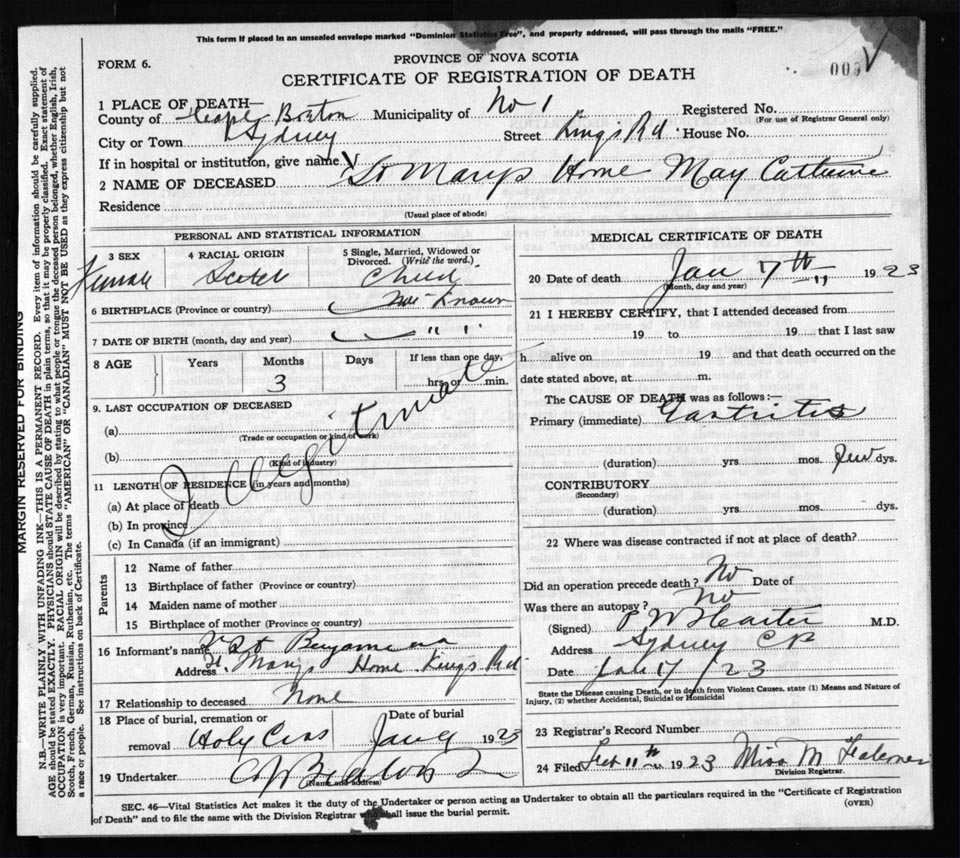 This form if placed in an unsealed envelope marked "Dominion Statistics Free", and properly addressed, will pass through the mails "FREE."
FORM 6.
PROVINCE OF NOVA SCOTIA
CERTIFICATE OF REGISTRATION OF DEATH
009
1 PLACE OF DEATH—
County of Cape Breton Municipality of No 1 Registered No.
(For use of Registrar General only)
City or Town Sydney Street King's Rd. House No.
If in hospital or institution, give name
2 NAME OF DECEASED St Marys Home May Catherine
Residence
(Usual place of abode)
PERSONAL AND STATISTICAL INFORMATION
3 SEX 4 RACIAL ORIGIN 5 Single, Married, Widowed or Divorced. (Write the word.)
Female Scotch Child
6 BIRTHPLACE (Province or country) Not Known
7 DATE OF BIRTH (month, day and year) " "
8 AGE Years Months Days If less than one day,
3 hrs. or min.
9. LAST OCCUPATION OF DECEASED
(a)
(Trade or occupation or kind of work)
(b)
(Kind of industry)
Illegitimate
11 LENGTH OF RESIDENCE (in years and months)
(a) At place of death
(b) In province
(c) In Canada (if an immigrant)
Parents
12 Name of father
13 Birthplace of father (Province or country)
14 Maiden name of mother
15 Birthplace of mother (Province or country)
16 Informant's name
Address St. Marys Home King's Rd
17 Relationship to deceased None
18 Place of burial, cremation or removal Holy Cross Date of burial Jan 9 1923
19 Undertaker
(Name and address)
MEDICAL CERTIFICATE OF DEATH
20 Date of death Jan 7th 1923
(Month, day and year)
21 I HEREBY CERTIFY, that I attended deceased from
19 to 19 that I last saw
h alive on 19 and that death occurred on the
date stated above, at m.
The CAUSE OF DEATH was as follows:
Primary (immediate) Gastritis
(duration) yrs. mos. few dys.
CONTRIBUTORY
(Secondary)
(duration) yrs. mos. dys.
22 Where was disease contracted if not at place of death?
Did an operation precede death? No Date of
Was there an autopsy? No
(Signed) M.D.
Address Sydney CB
Date Jan 7/23
State the Disease causing Death, or in death from Violent Causes, state (1) Means and Nature of
Injury, (2) whether Accidental, Suicidal or Homicidal
23 Registrar's Record Number
24 Filed 11th 1923 Miss M
Division Registrar.
SEC. 46—Vital Statistics Act makes it the duty of the Undertaker or person acting as Undertaker to obtain all the particulars required in the "Certificate of Registration
of Death" and to file the same with the Division Registrar who shall issue the burial permit.
(OVER)
MARGIN RESERVED FOR BINDING
N.B.—WRITE PLAINLY WITH UNFADING INK—THIS IS A PERMANENT RECORD. Every item of information should be carefully supplied.
AGE should be stated EXACTLY. PHYSICIANS should STATE CAUSE OF DEATH in plain terms, so that it may be properly classified. Exact statement of
OCCUPATION is very important. RACIAL ORIGIN will be described by stating to what people or tongue the deceased person belonged, whether English, Irish,
Scotch, French, German, Russian, Ruthenian, etc. The terms "AMERICAN" or "CANADIAN" MUST NOT BE USED as they express citizenship but not
a race or people. See instructions on back of Certificate.